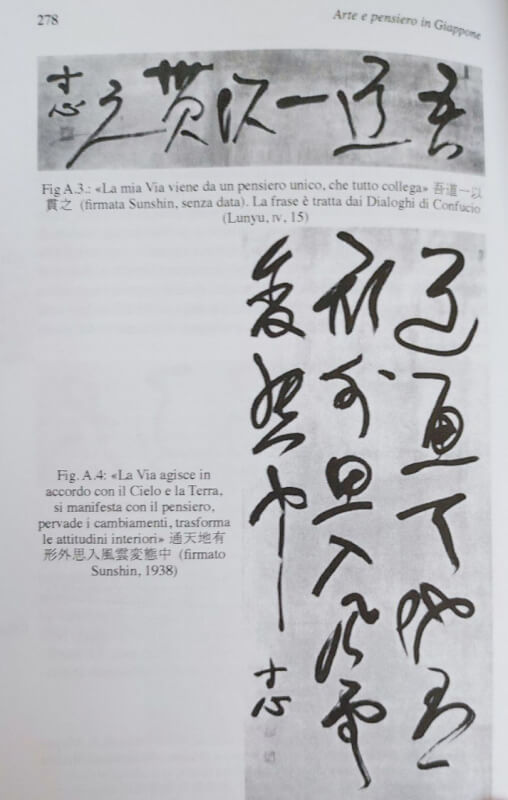 278
Arte e pensiero in Giappone
吾道一以貫之
寸心
Fig A.3.: «La mia Via viene da un pensiero unico, che tutto collega» 吾道一以
貫之 (firmata Sunshin, senza data). La frase è tratta dai Dialoghi di Confucio
(Lunyu, IV, 15)
道通天地有
形外思入風雲
変態中
寸心
Fig. A.4: «La Via agisce in
accordo con il Cielo e la Terra,
si manifesta con il pensiero,
pervade i cambiamenti, trasforma
le attitudini interiori» 通天地有
形外思入風雲変態中 (firmato
Sunshin, 1938)